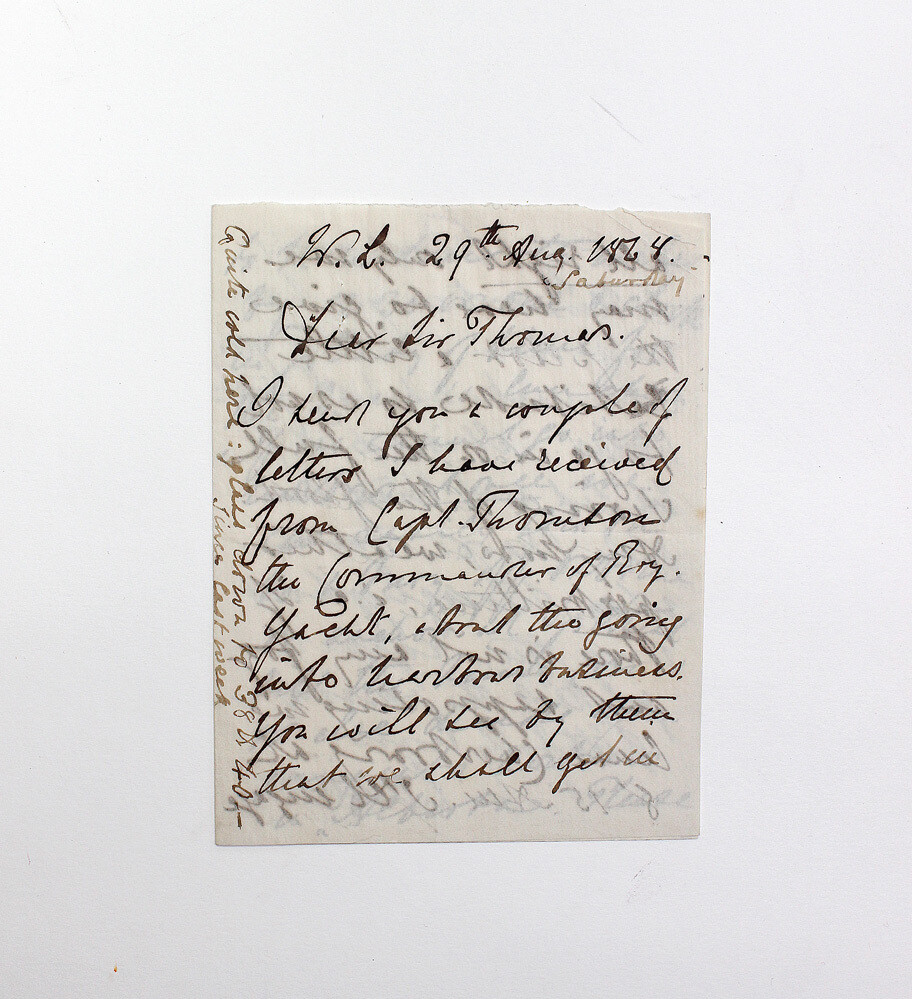 W. L. 29th Aug. 1868.
Saturday
Dear Sir Thomas.
I send you a couple of
letters I have received
from Capt. Thomson
the Commander of Roy.
Yacht, about the going
into harbour business.
You will see by them
that we shall get in
Quite cold here : glass down to 38 & 40_
since last week